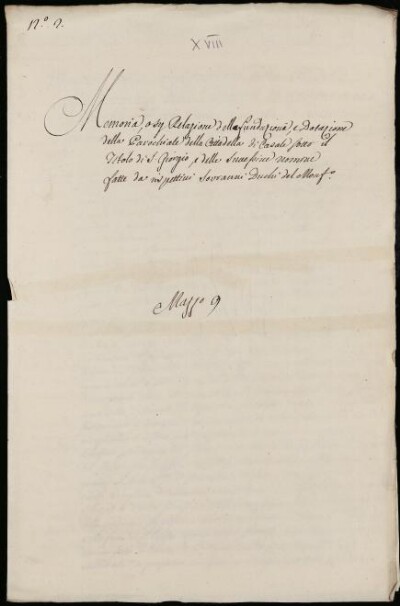 N.º 2.
XVIII
Memoria, o sij Relazione della fundazione, e Dotazione
della Parochiale della Cittadella di Casale sotto il
Titolo di S. Giorgio, e delle successive nomine
fatte da rispettivi Sovrani Duchi del Monf.º
Mazzo 9